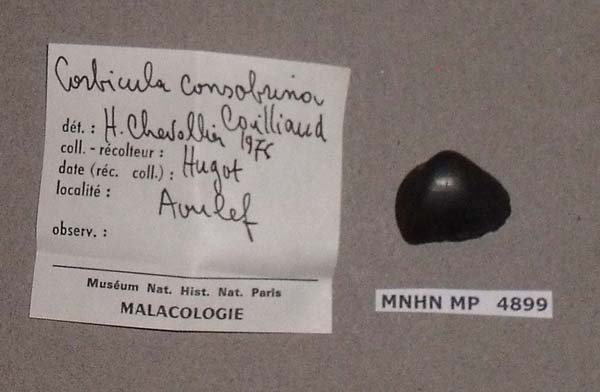 Corbicula consobrina
Cailliaud
dét. : H. Chevallier 1975
coll. - récolteur :
date (réc. coll.) : Hugot
localité :
Aoulef
observ. :
Muséum Nat. Hist. Nat. Paris
MALACOLOGIE
MNHN MP 4899